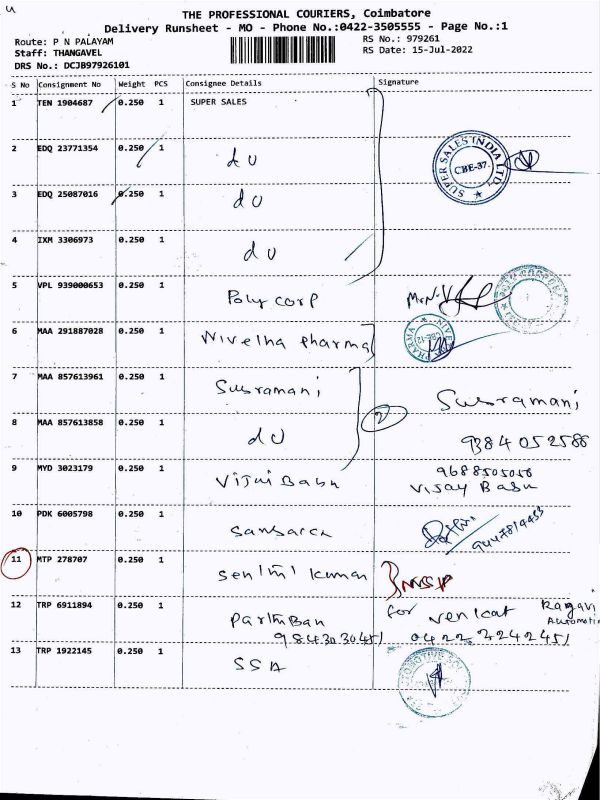 THE PROFESSIONAL COURIERS, Coimbatore
Delivery Runsheet - MO - Phone No.:0422-3505555 - Page No.:1
Route: P N PALAYAM
RS No.: 979261
Staff: THANGAVEL
RS Date: 15-Jul-2022
DRS No.: DCJB97926101
S No Consignment No Weight PCS Consignee Details Signature
1 TEN 1904687 0.250 1 SUPER SALES
2 EDQ 23771354 0.250 1 do
SUPER SALES INDIA LTD. CBE-37.
3 EDQ 25087016 0.250 1 do
4 IXM 3306973 0.250 1 do
5 VPL 939000653 0.250 1 Poly corp
6 MAA 291887028 0.250 1 Nivetha pharma
7 MAA 857613961 0.250 1 Susramani
2 Susramani
8 MAA 857613858 0.250 1 do 9384052588
9 MYD 3023179 0.250 1 Vijai Babu 9688505058
Vijay Babu
10 PDK 6005798 0.250 1
11 MTP 278707 0.250 1 Senthil kumar
12 TRP 6911894 0.250 1 Parthiban for Venkat Ragavi
Automotive
9843030451 0422 2242451
13 TRP 1922145 0.250 1 SSA